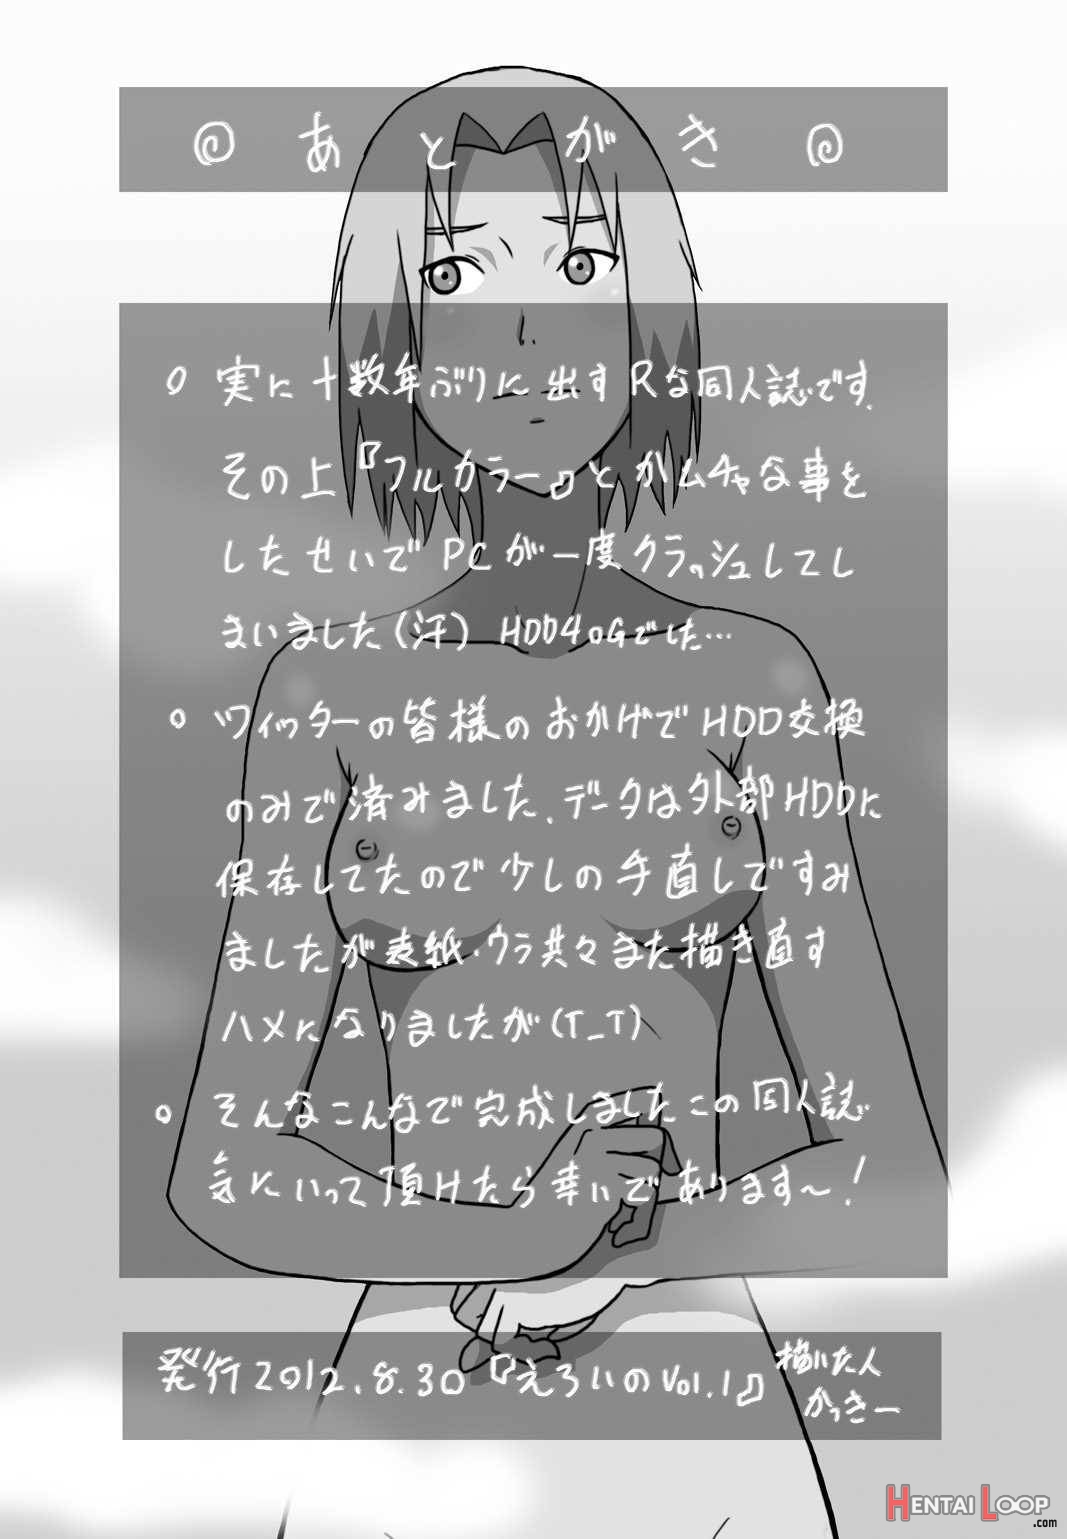 ◎あとがき◎
○ 実に十数年ぶりに出すRな同人誌です.
その上『フルカラー』とかムチャな事を
したせいでPCが一度クラッシュしてし
まいました(汗) HDD40Gでした…
○ ツイッターの皆様のおかげでHDD交換
のみで済みました.データは外部HDDに
保存してたので少しの手直しですみ
ましたが表紙・ウラ共々また描き直す
ハメになりましたが(T_T)
○ そんなこんなで完成しましたこの同人誌
気にいって頂けたら幸いであります〜!
発行2012.8.30『えろいのVol.1』描いた人
かっきー
HENTAI LOOP
.com